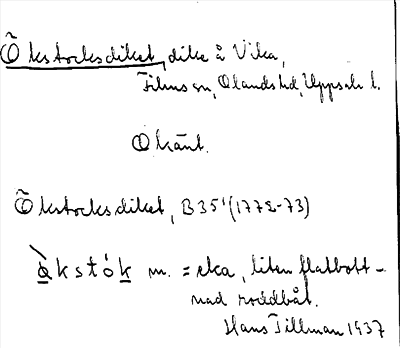 Õkstocksdiket, dike å Vika,
Films sn, Olands hd, Uppsala l.
Okänt.
Õkstocksdiket, B 35¹ (1772-73)
åkstók m. = eka, liten flatbott-
nad roddbåt.
Hans Tillman 1937